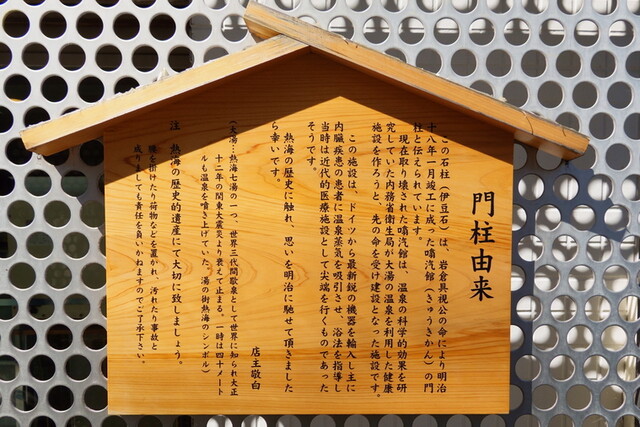 門柱由来
この石柱（伊豆石）は、岩倉具視公の命により明治
十八年一月竣工に成った噏汽館（きゅうきかん）の門
柱と伝えられています。
現在取り壊された噏汽館は、温泉の科学的効果を研
究していた内務省衛生局が大湯の温泉を利用した健康
施設を作ろうと、先の命を受け建設となった施設です。
この施設は、ドイツから最新鋭の機器を輸入し主に
内臓疾患の患者に温泉蒸気を吸引させ、浴法を指導し
当時は近代的医療施設として尖端を行くものであった
そうです。
熱海の歴史に触れ、思いを明治に馳せて頂きました
ら幸いです。
店主敬白
（大湯：熱海七湯の一つ、世界三代間歇泉として世界に知られ大正
十二年の関東大震災より衰えて止まる。一時は四十メート
ルも温泉を噴き上げていた。湯の街熱海のシンボル）
注 熱海の歴史的遺産にて大切に致しましょう。
腰を掛けたり荷物などを置かれ、汚れたり事故と
成りましても責任を負いかねますのでご了承下さい。